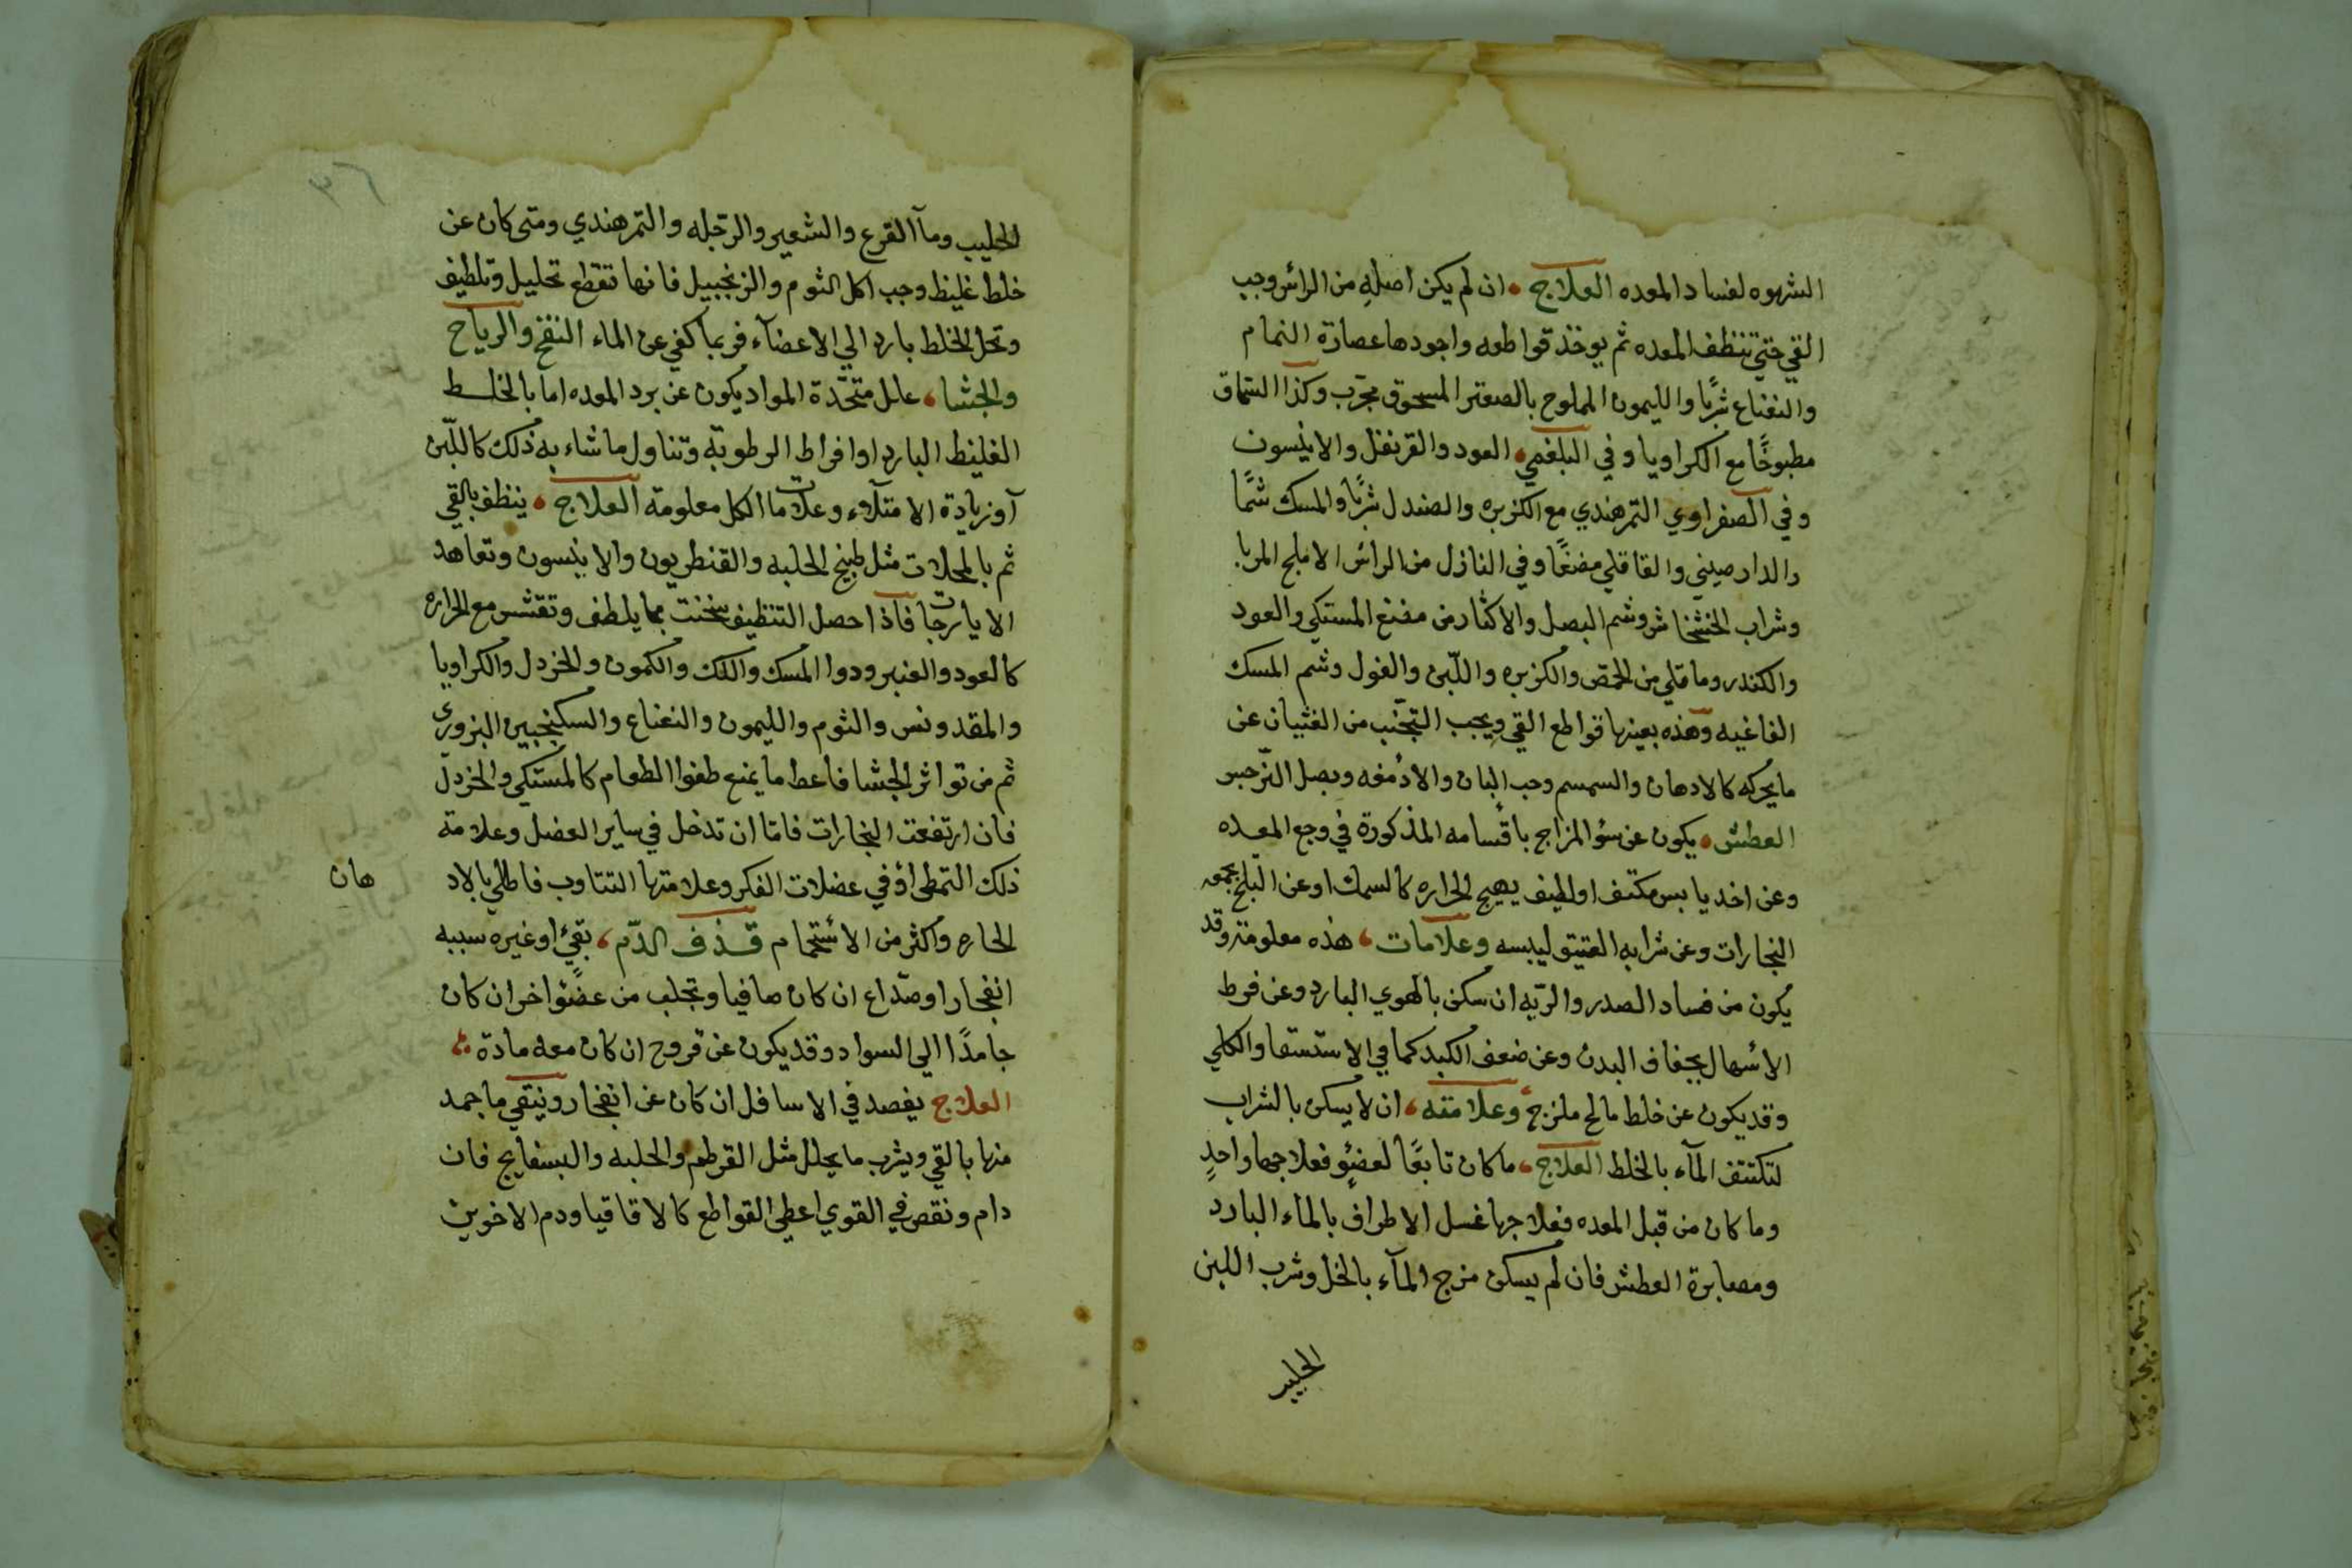 الشهوه لفساد المعده العلاج ان لم يكن اصله من الرائس وجب
القي حتي تنظف المعده ثم يوخذ قواطعه واجودها عصارة النمام
والنعناع شربًا والليمون المملوح بالصعتر المسحوق مجرّب وكذا السّماق
مطبوخًا مع الكراويا وفي البلغمي العود والقرنفل والانيسون
وفي الصفراوي التمرهندي مع الكزبره والصندل شربًا والمسك شمًا
والدارصيني والقاقلي مضغًا وفي النازل من الرائس الاملج المربا
وشراب الخشخاش وشم البصل والاكثار من مضغ المستكي والعود
والكندر وما قلي من الحمّص والكزبره واللّبن والفول وشم المسك
الفاغيه وهذه بعينها قواطع القي ويجب التجنّب من الغثيان عن
ما يحركه كالادهان والسمسم وحب البان والادمغه وبصل النّرجس
العطش يكون عن سؤ المزاج باقسامه المذكورة في وجع المعده
وعن اخذ يابس مكتف او لطيف يهيج الحراره كالسمك او عن البلح بجمعه
البخارات وعن شرابه العتيق ليبسه وعلامات هذه معلومته وقد
يكون من فساد الصدر والريّه ان سكن بالهوي البارد وعن فرط
الاسهال بجفاف البدن وعن ضعف الكبد كما في الاستسقا والكلي
وقد يكون عن خلط مالح ملزج وعلامته ان لا يسكن بالشراب
لتكتنف المآء بالخلط العلاج ما كان تابعًا لعضؤٍ فعلاجهما واحدٍ
وما كان من قبل المعده فعلاجها غسل الاطراف بالماء البارد
ومصابرة العطش فان لم يسكن مزج المآء بالخل وشرب اللبن
الحليب
٣٦
الحليب ومآ القرع والشعير والرّجله والتمرهندي ومتي كان عن
خلط غليظ وجب اكل الثوم والزنجبيل فانها تقطع تحليل وتلطيف
وتحل الخلط بارد الي الاعضآء فربما كفي عن الماء النفخ والرياح
والجشا علل متحّدة المواد يكون عن برد المعده اما بالخلط
الغليظ البارد او افراط الرطوبته وتناول ما شاء به ذلك كاللّبن
آو زيادة الامتلآء وعلامات الكل معلومته العلاج ينظف بالقي
ثم بالمحللات مثل طبيخ الحلبه والقنطريون والانيسون وتعاهد
الايارجات فاذا حصل التنظيف سخنت بما يلطف وتقشس مع الحراره
كالعود والعنبر ودوا المسك واللك والكمون والخردل والكراويا
والمقدونس والثوم والليمون والنعناع والسكنجبين البزوري
ثم من تواثر الجشا فاعط ما يمنع طفوا الطعام كالمستكي والخردل
فان ارتفعت البخارات فامّا ان تدخل في ساير العضل وعلامته
ذلك التمطي اؤ في عضلات الفكر وعلامتها التتاوب فاطلي بالاد هان
الحاره واكثر من الاستحمام قذف الدّم بقيٍ او غيره سببه
انفجار او صدّاع ان كان صافيا وتجلب من عضؤا خر ان كان
جامدًا الي السواد وقد يكون عن قروح ان كان معه مادة
العلاج يفصد في الاسافل ان كان عن انفجار وينتقي ما جمد
منها بالقي ويشرب ما يحلل مثل القرطم والحلبه والبسفايج فان
دام ونقص في القوي اعطي القواطع كالاقاقيا ودم الاخوين